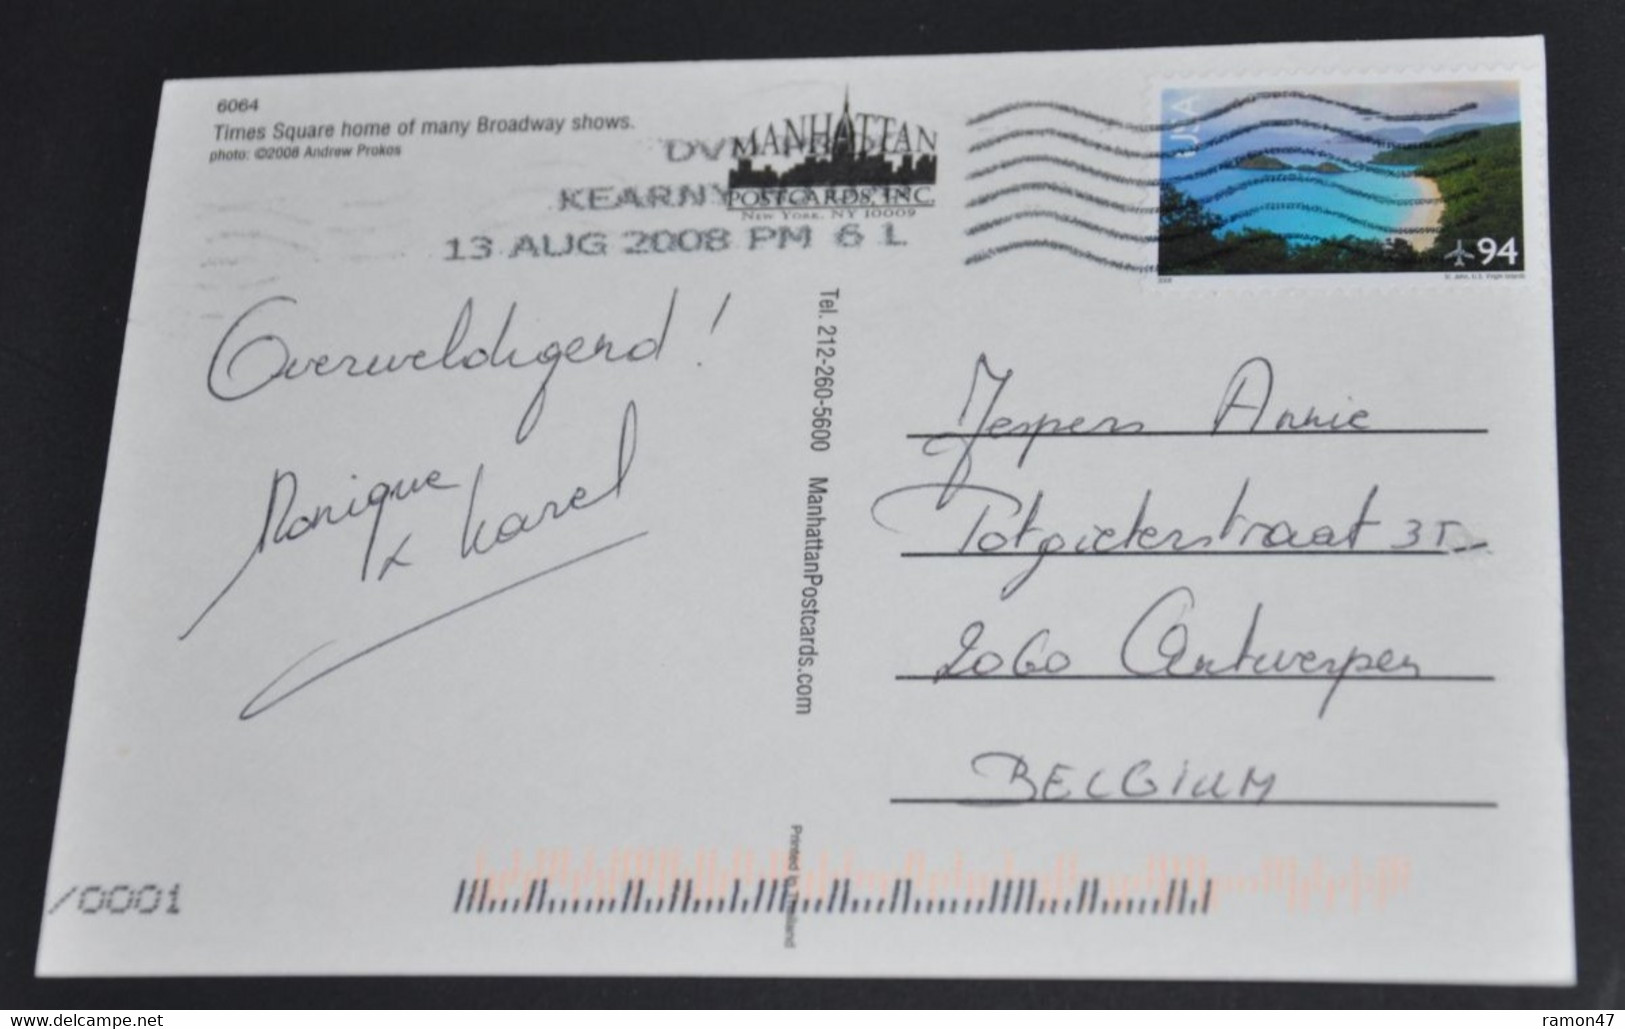 6064
Times Square home of many Broadway shows.
photo: ©2008 Andrew Prokos
MANHATTAN
POSTCARDS, INC.
NEW YORK, NY 10009
KEARNY
13 AUG 2008 PM 6 L
USA
94
St. John, U.S. Virgin Islands
Overweldigend!
Monique
& Karel
Tel. 212-260-5600 ManhattanPostcards.com
Printed in Thailand
Jespers Annie
Potgieterstraat
2060 Antwerpen
BELGIUM
/0001
ramon47
www.delcampe.net